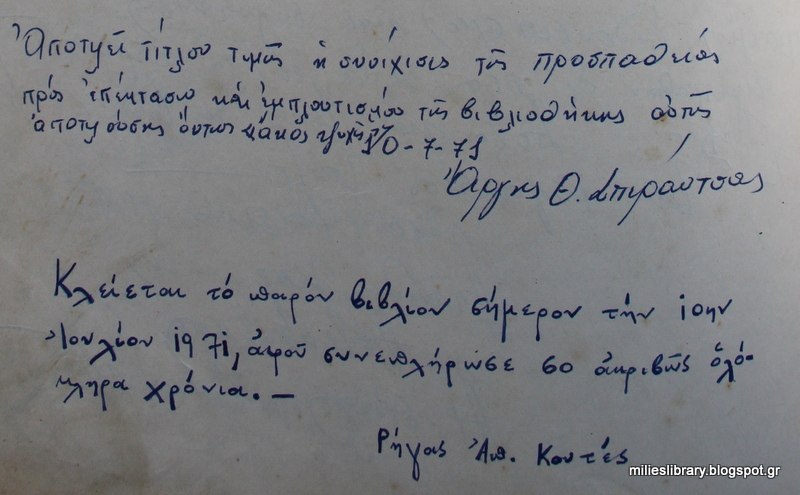 Ἀποτελεῖ τίτλον τιμῆς ἡ συνέχισις τῆς προσπαθείας
πρός ἐπέκτασιν καί ἐμπλουτισμόν τῆς βιβλιοθήκης αὐτῆς
ἀποτελούσης ὄντως
10-7-71
Θ.
Κλείεται τό παρόν βιβλίον σήμερον τήν 10ην
Ἰουλίου 1971, ἀφοῦ συνεπλήρωσε 60 ἀκριβῶς ὁλό-
κληρα χρόνια. —
Ρήγας Ἀπ. Κουτές
milieslibrary.blogspot.gr